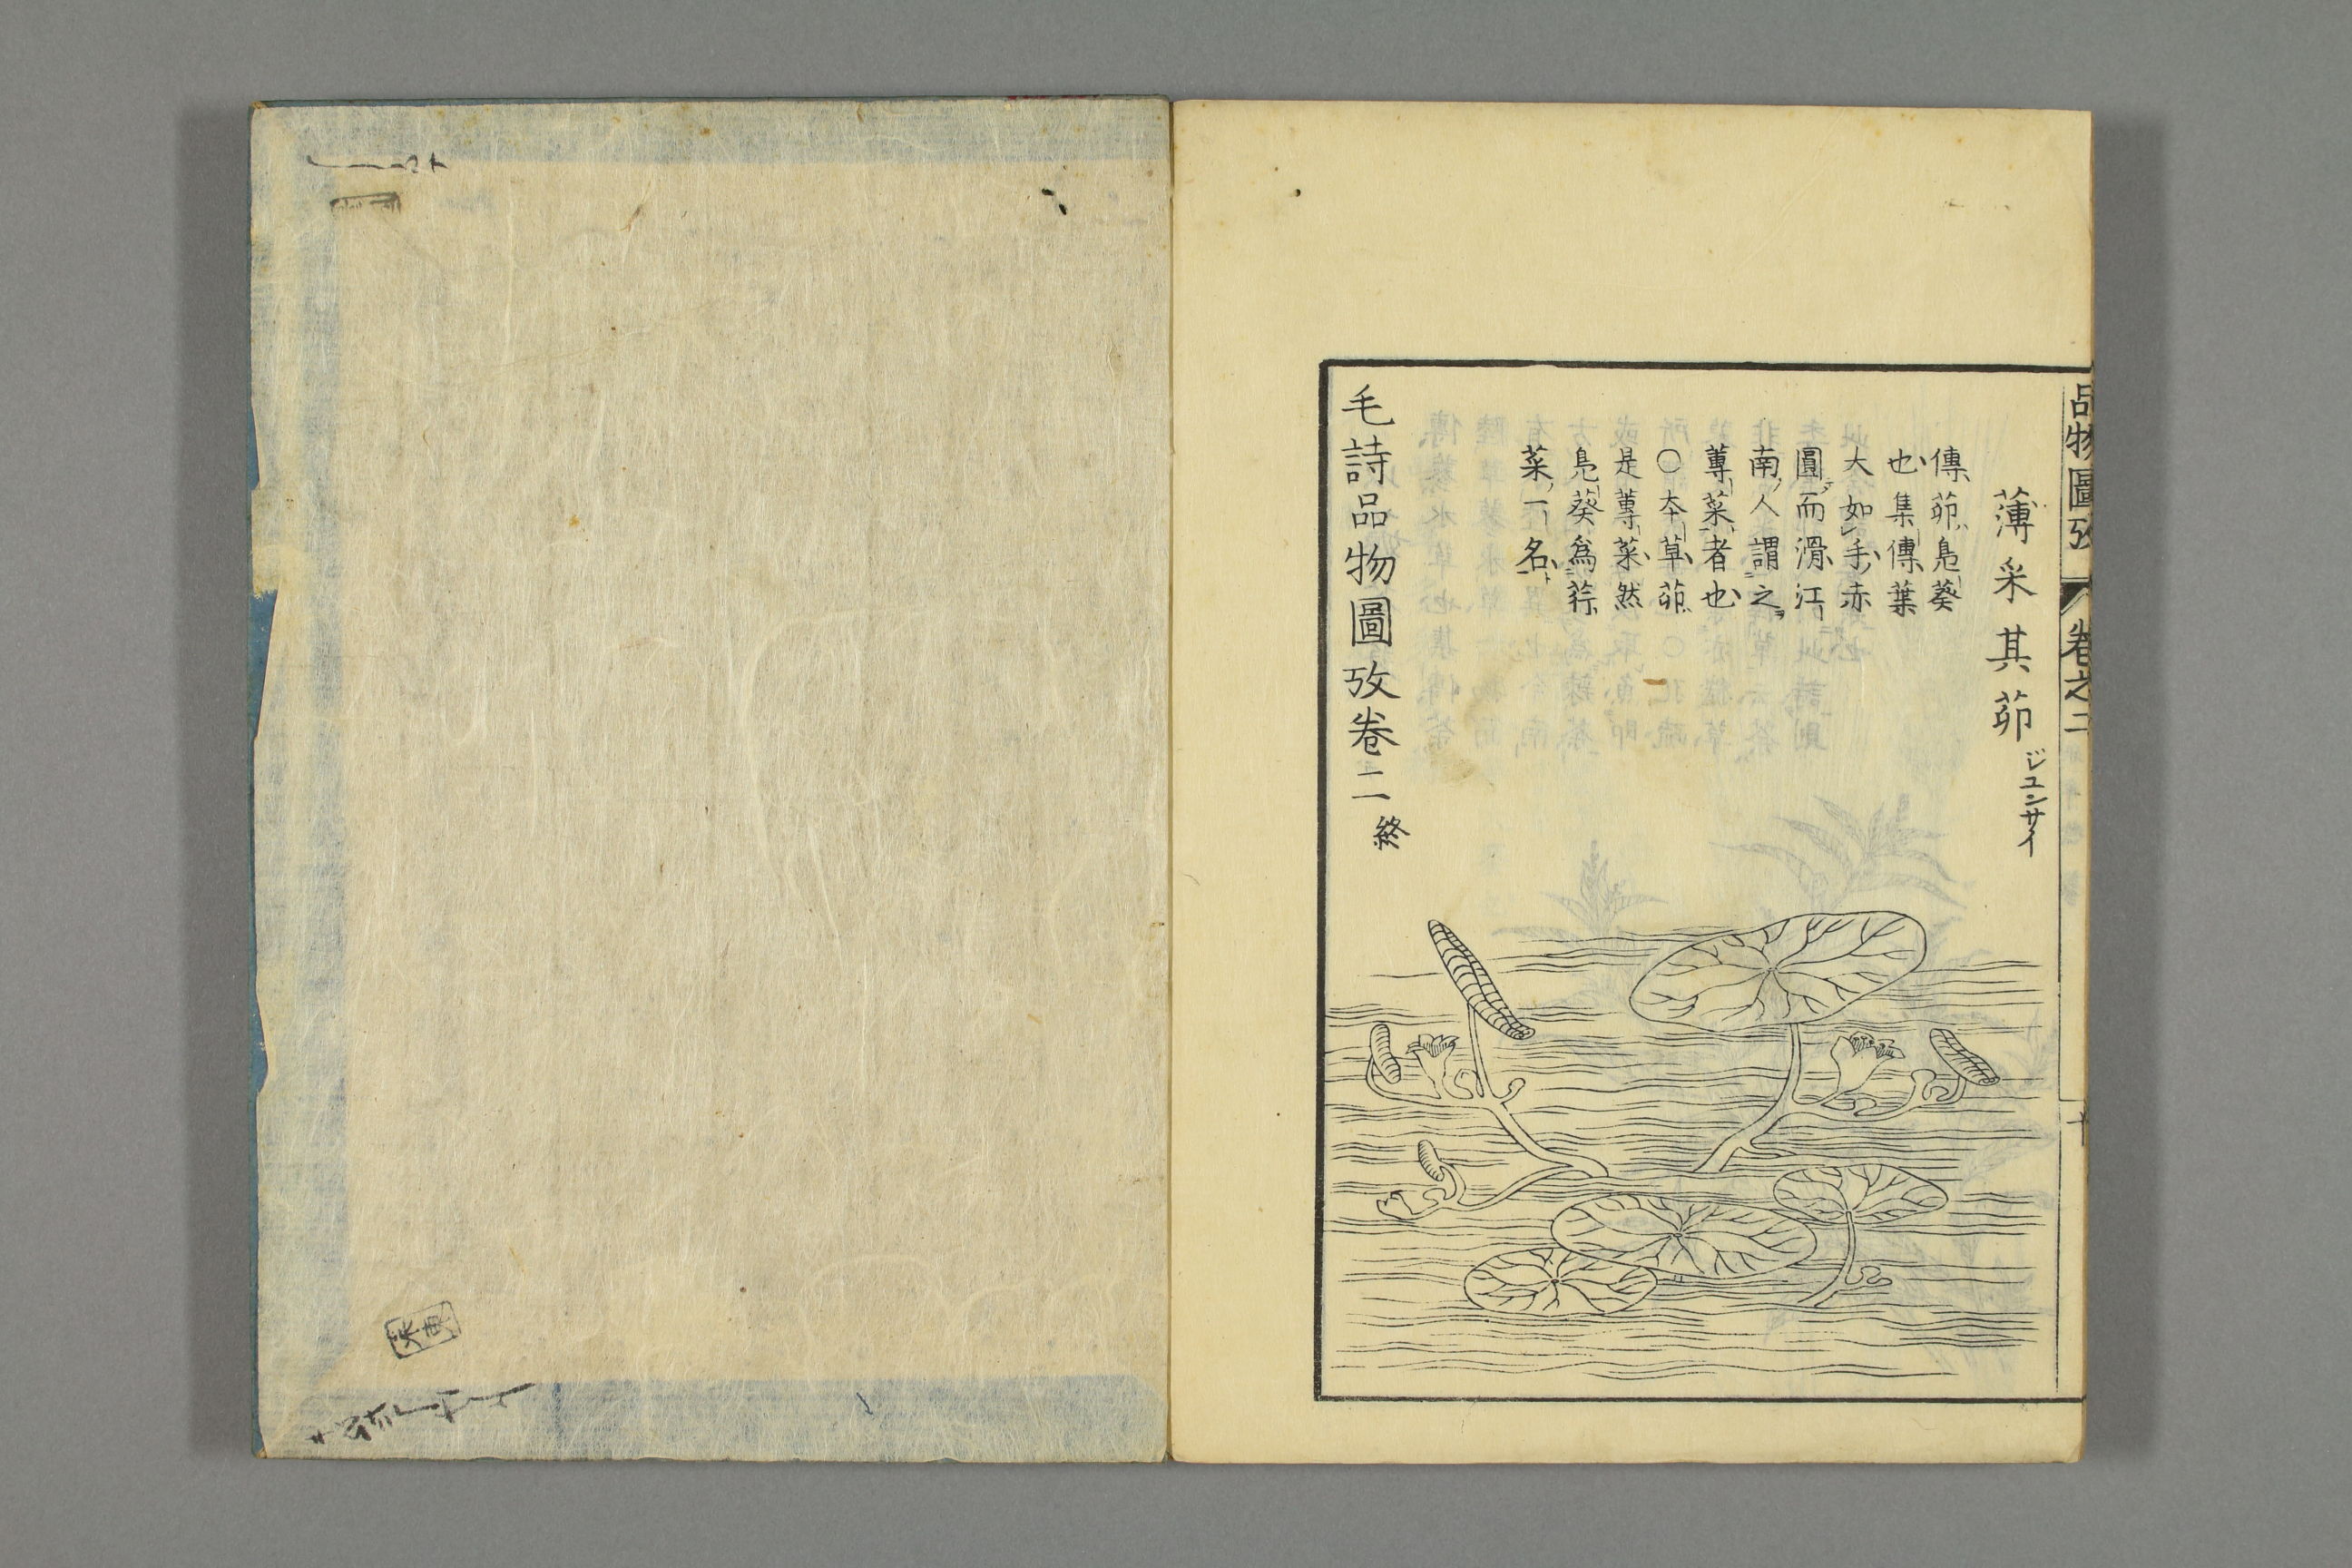 品物圖攷 卷之二
薄采其茆
ジユンサイ
傳茆鳧葵
也集傳葉
大如手赤
圓而滑江
南人謂之
蓴菜者也
○本草茆
是蓴菜然
鳧葵爲荇
菜一名
毛詩品物圖攷卷二終